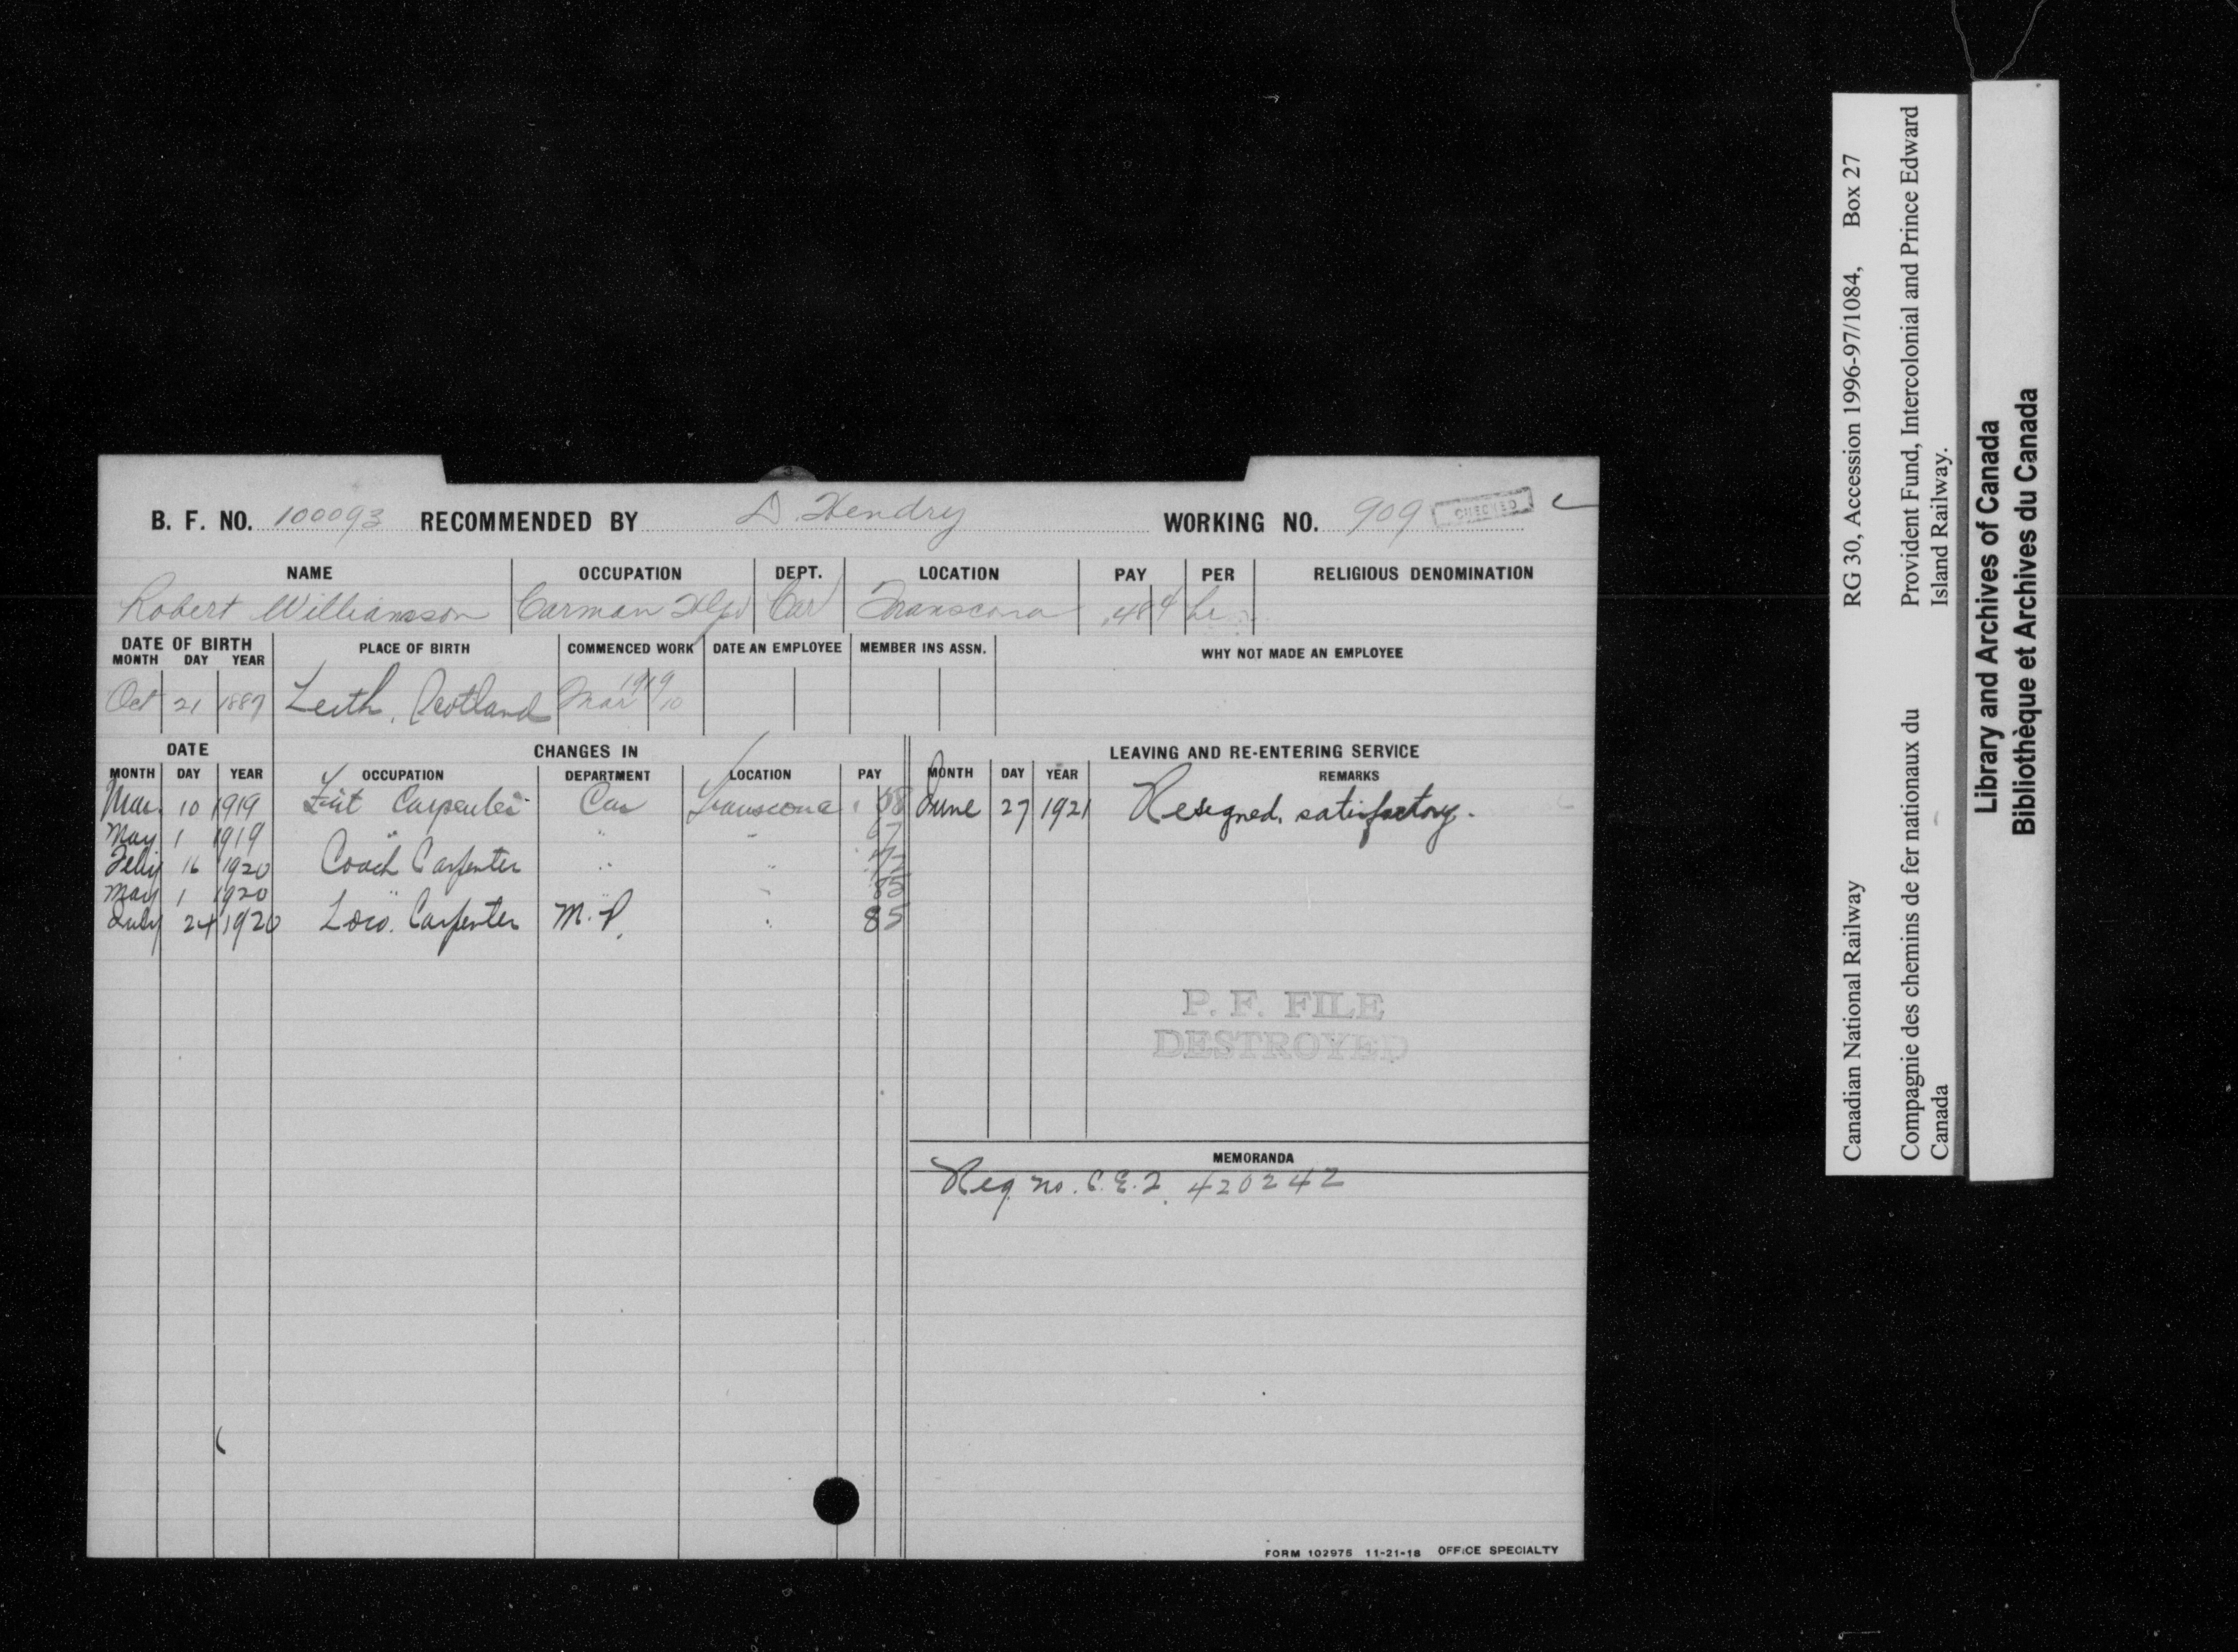 B. F. NO. 100093 RECOMMENDED BY D. Hendry WORKING NO. 909 CHECKED
NAME OCCUPATION DEPT. LOCATION PAY PER RELIGIOUS DENOMINATION
Robert Williamson Carman Hlpr Car Transcona .48 4 hr
DATE OF BIRTH PLACE OF BIRTH COMMENCED WORK DATE AN EMPLOYEE MEMBER INS ASSN. WHY NOT MADE AN EMPLOYEE
MONTH DAY YEAR
Oct 21 1887 Leith, Scotland Mar 10 1919
DATE CHANGES IN LEAVING AND RE-ENTERING SERVICE
MONTH DAY YEAR OCCUPATION DEPARTMENT LOCATION PAY MONTH DAY YEAR REMARKS
Mar. 10 1919 Frt Carpenter Car Transcona .58 June 27 1921 Resigned, satisfactory.
May 1 1919 " " " 67
Feby 16 1920 Coach Carpenter " "
May 1 1920 " " " 85
July 24 1920 Loco. Carpenter M.P. " 85
P. F. FILE
DESTROYED
MEMORANDA
Reg. no. C.E.F. 420242
FORM 102975 11-21-18 OFFICE SPECIALTY
Canadian National Railway RG 30, Accession 1996-97/1084, Box 27
Compagnie des chemins de fer nationaux du Provident Fund, Intercolonial and Prince Edward
Canada Island Railway.
Library and Archives of Canada
Bibliothèque et Archives du Canada